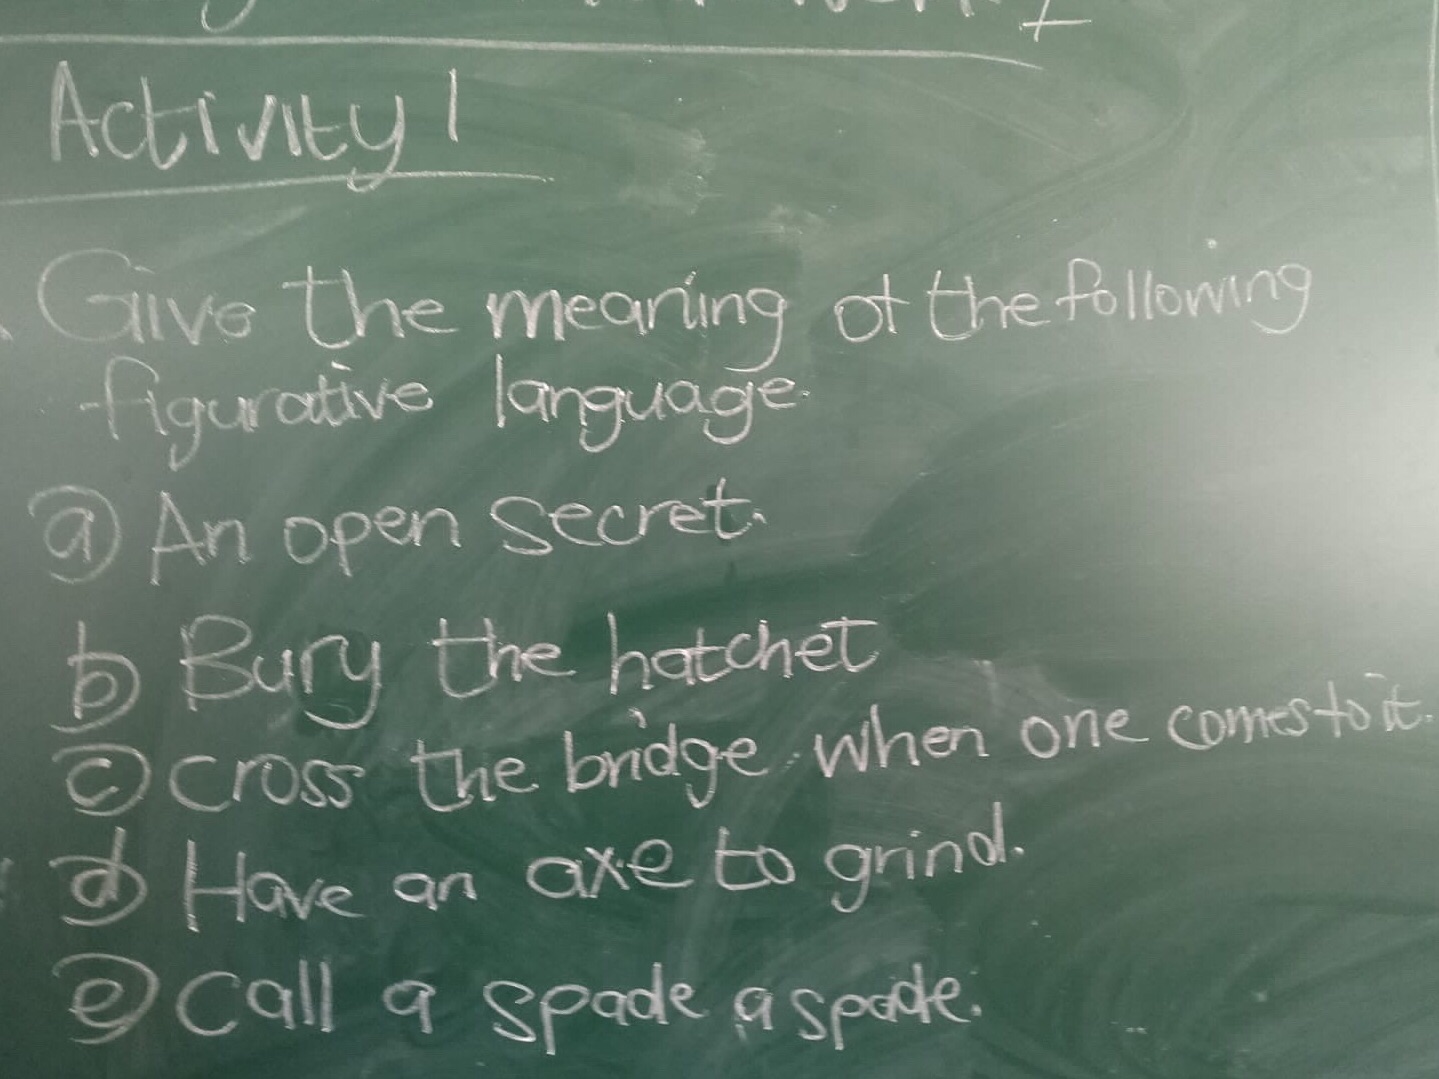 Activity 1
Give the meaning of the following
figurative language.
(a) An open secret.
(b) Bury the hatchet
(c) Cross the bridge when one comes to it.
(d) Have an axe to grind.
(e) Call a spade a spade.